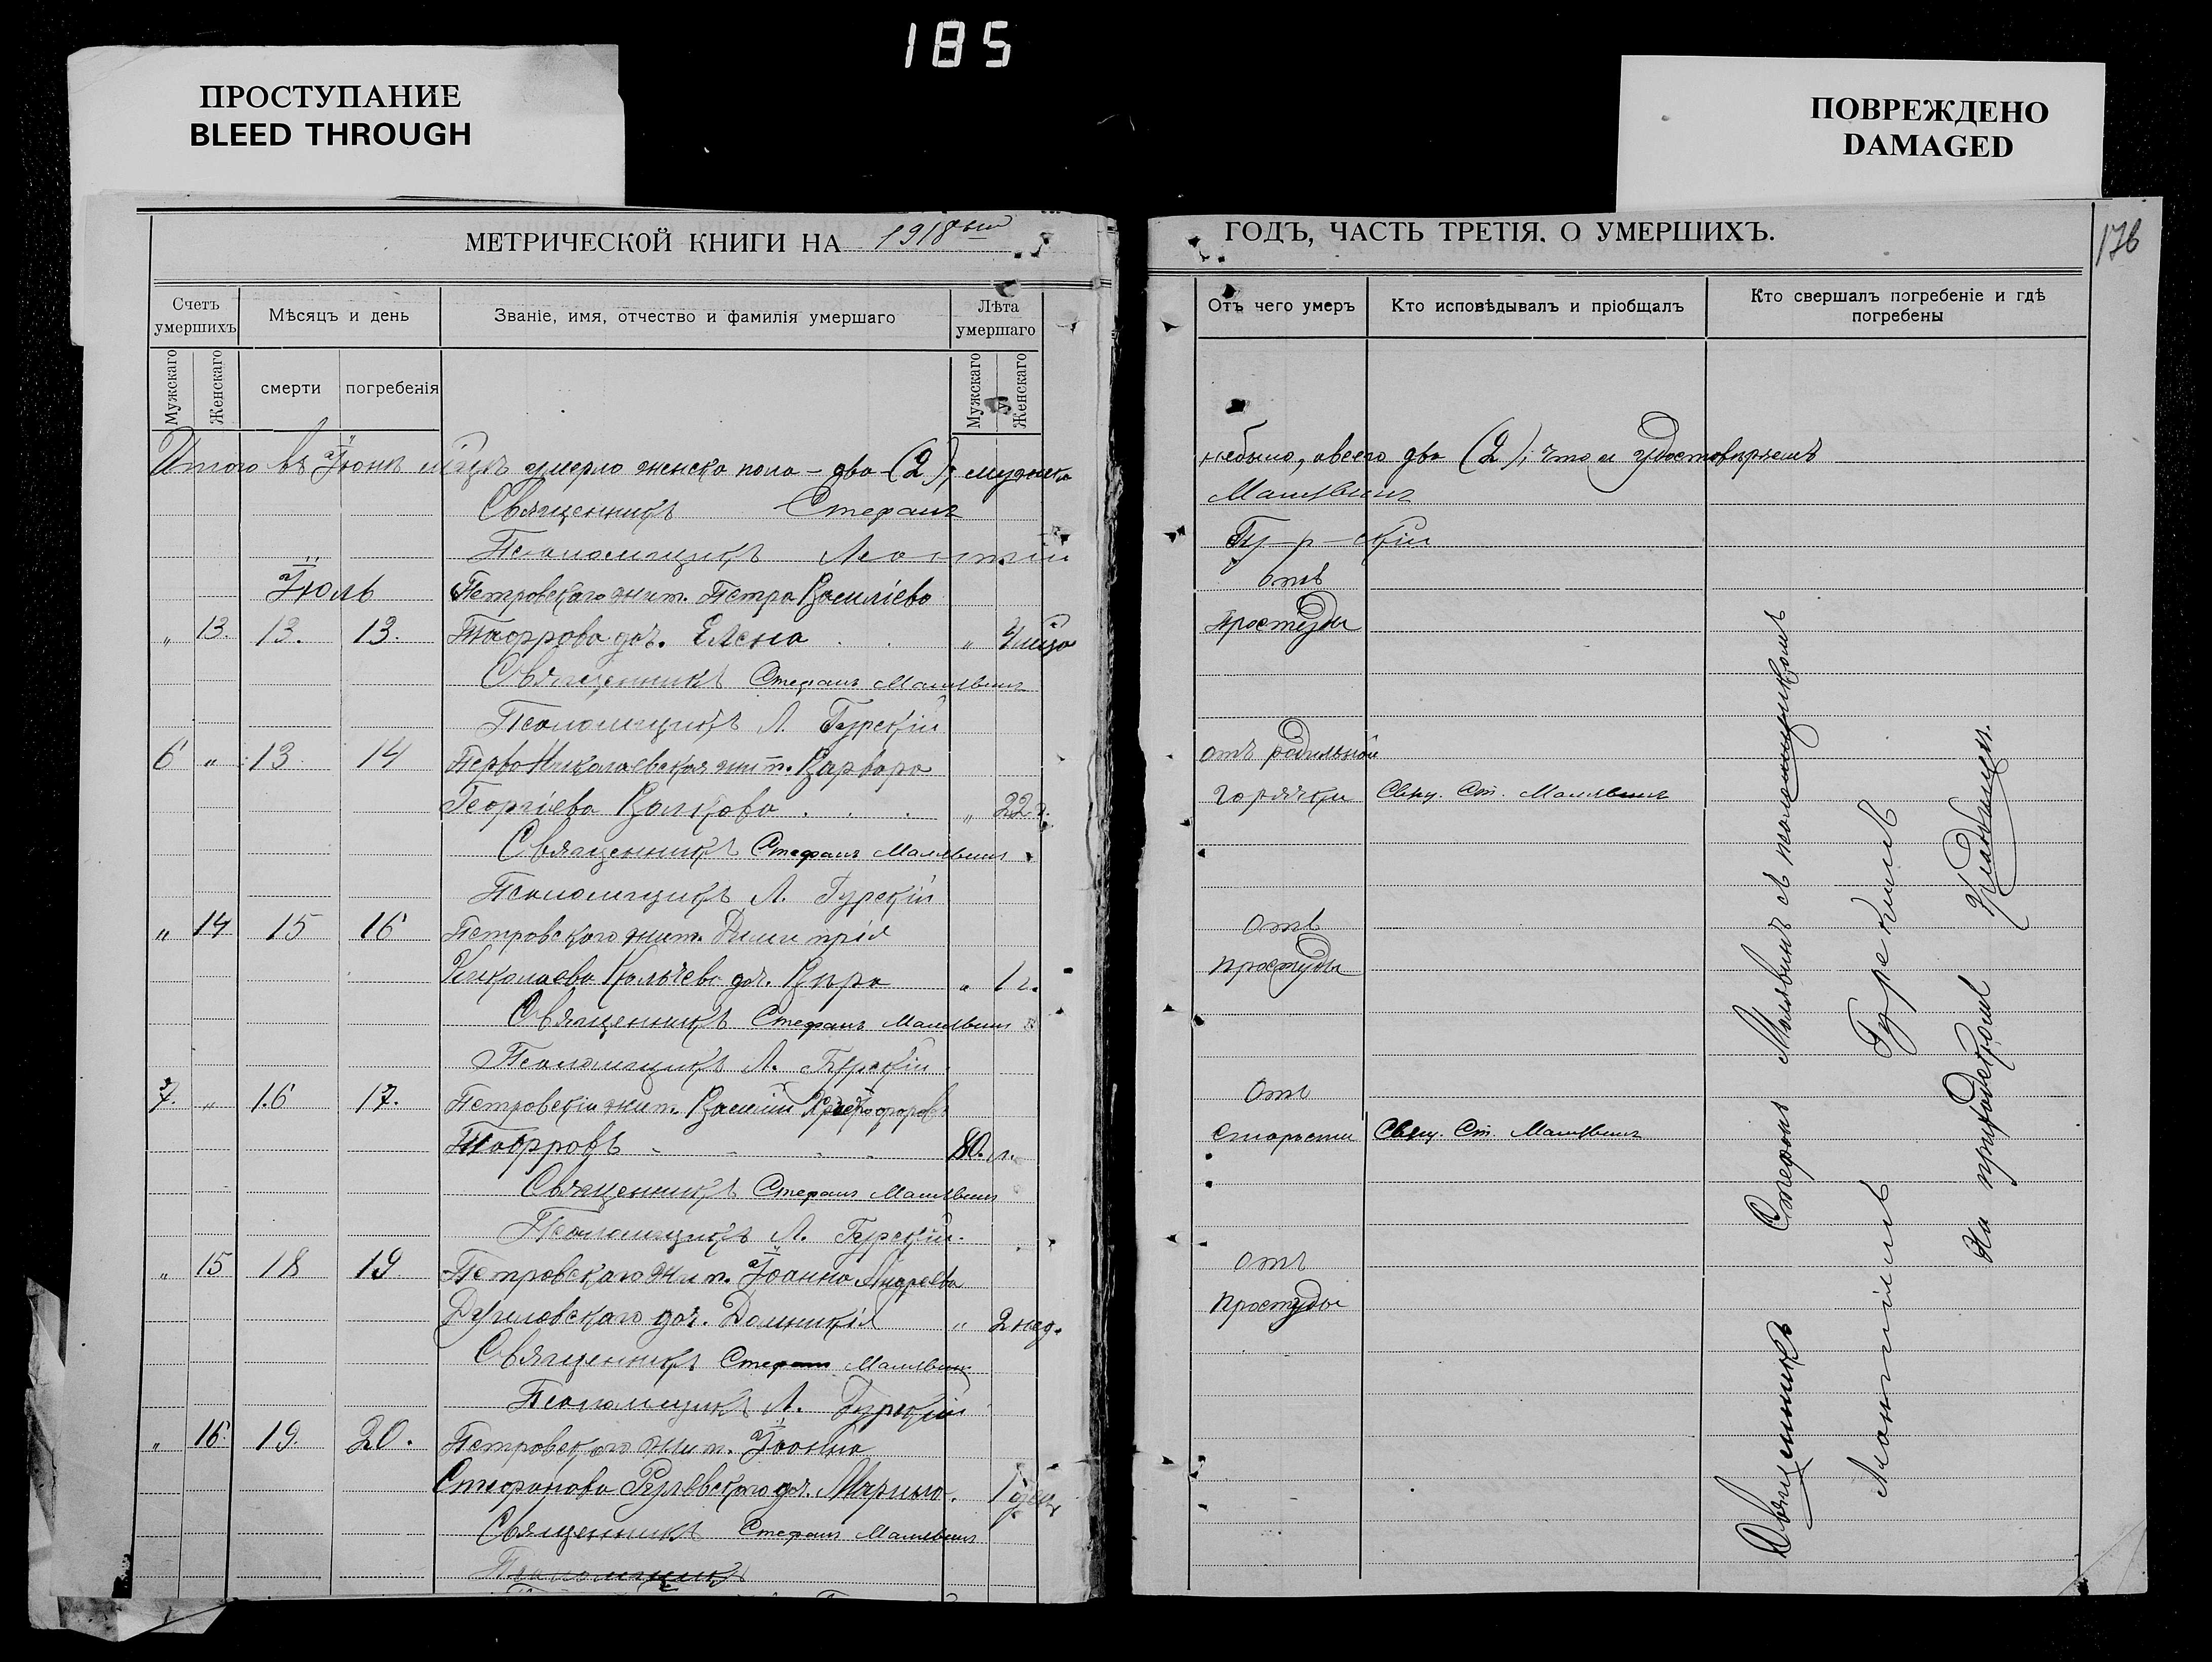 185
ПРОСТУПАНИЕ
BLEED THROUGH
ПОВРЕЖДЕНО
DAMAGED
МЕТРИЧЕСКОЙ КНИГИ НА 1918ый
Счетъ умершихъ
Мужскаго
Женскаго
Мѣсяцъ и день
смерти
погребенія
Званіе, имя, отчество и фамилія умершаго
Лѣта умершаго
Мужскаго
Женскаго
Итого въ Іюнѣ м-цѣ умерло женска пола - два (2), мужска
Священникъ Стефанъ
Псаломщикъ Леонтій
Іюль Петровскаго жит. Петра Василіева
„ 13. 13. 13. доч. Елена „
Священникъ Стефанъ Малявинъ
Псаломщикъ Л. Гурскій
6 „ 13 14 Перво Николаевская жит. Варвара
Георгіева Волкова „ 22 г.
Священникъ Стефанъ Малявинъ
Псаломщикъ Л. Гурскій
„ 14 15 16 Петровскаго жит. Димитрія
Николаева доч. Вѣра „ 1 г.
Священникъ Стефанъ Малявинъ
Псаломщикъ Л. Гурскій
7. „ 16 17. Петровскій жит. Василій
80. л.
Священникъ Стефанъ Малявинъ
Псаломщикъ Л. Гурскій.
„ 15 18 19 Петровскаго жит. Іоанна Андреева
доч. Домникія „ 2 нед.
Священникъ Стефанъ Малявинъ
Псаломщикъ Л. Гурскій
„ 16. 19. 20. Петровскаго жит. Іоанна
Стефанова доч. 1
Священникъ Стефанъ Малявинъ
Псаломщикъ
ГОДЪ, ЧАСТЬ ТРЕТІЯ, О УМЕРШИХЪ.
176
Отъ чего умеръ
Кто исповѣдывалъ и пріобщалъ
Кто свершалъ погребеніе и гдѣ погребены
небыло, а всего два (2); что и удостовѣряемъ
Малявинъ
Гу-р-скій
отъ
простуды
отъ родильной
горячки Свящ. Ст. Малявинъ
отъ
простуды
отъ
старости Свящ. Ст. Малявинъ
отъ
простуды
Священникъ Стефанъ Малявинъ съ псаломщикомъ
Леонтіемъ Гурскимъ
На приходскомъ кладбищѣ.